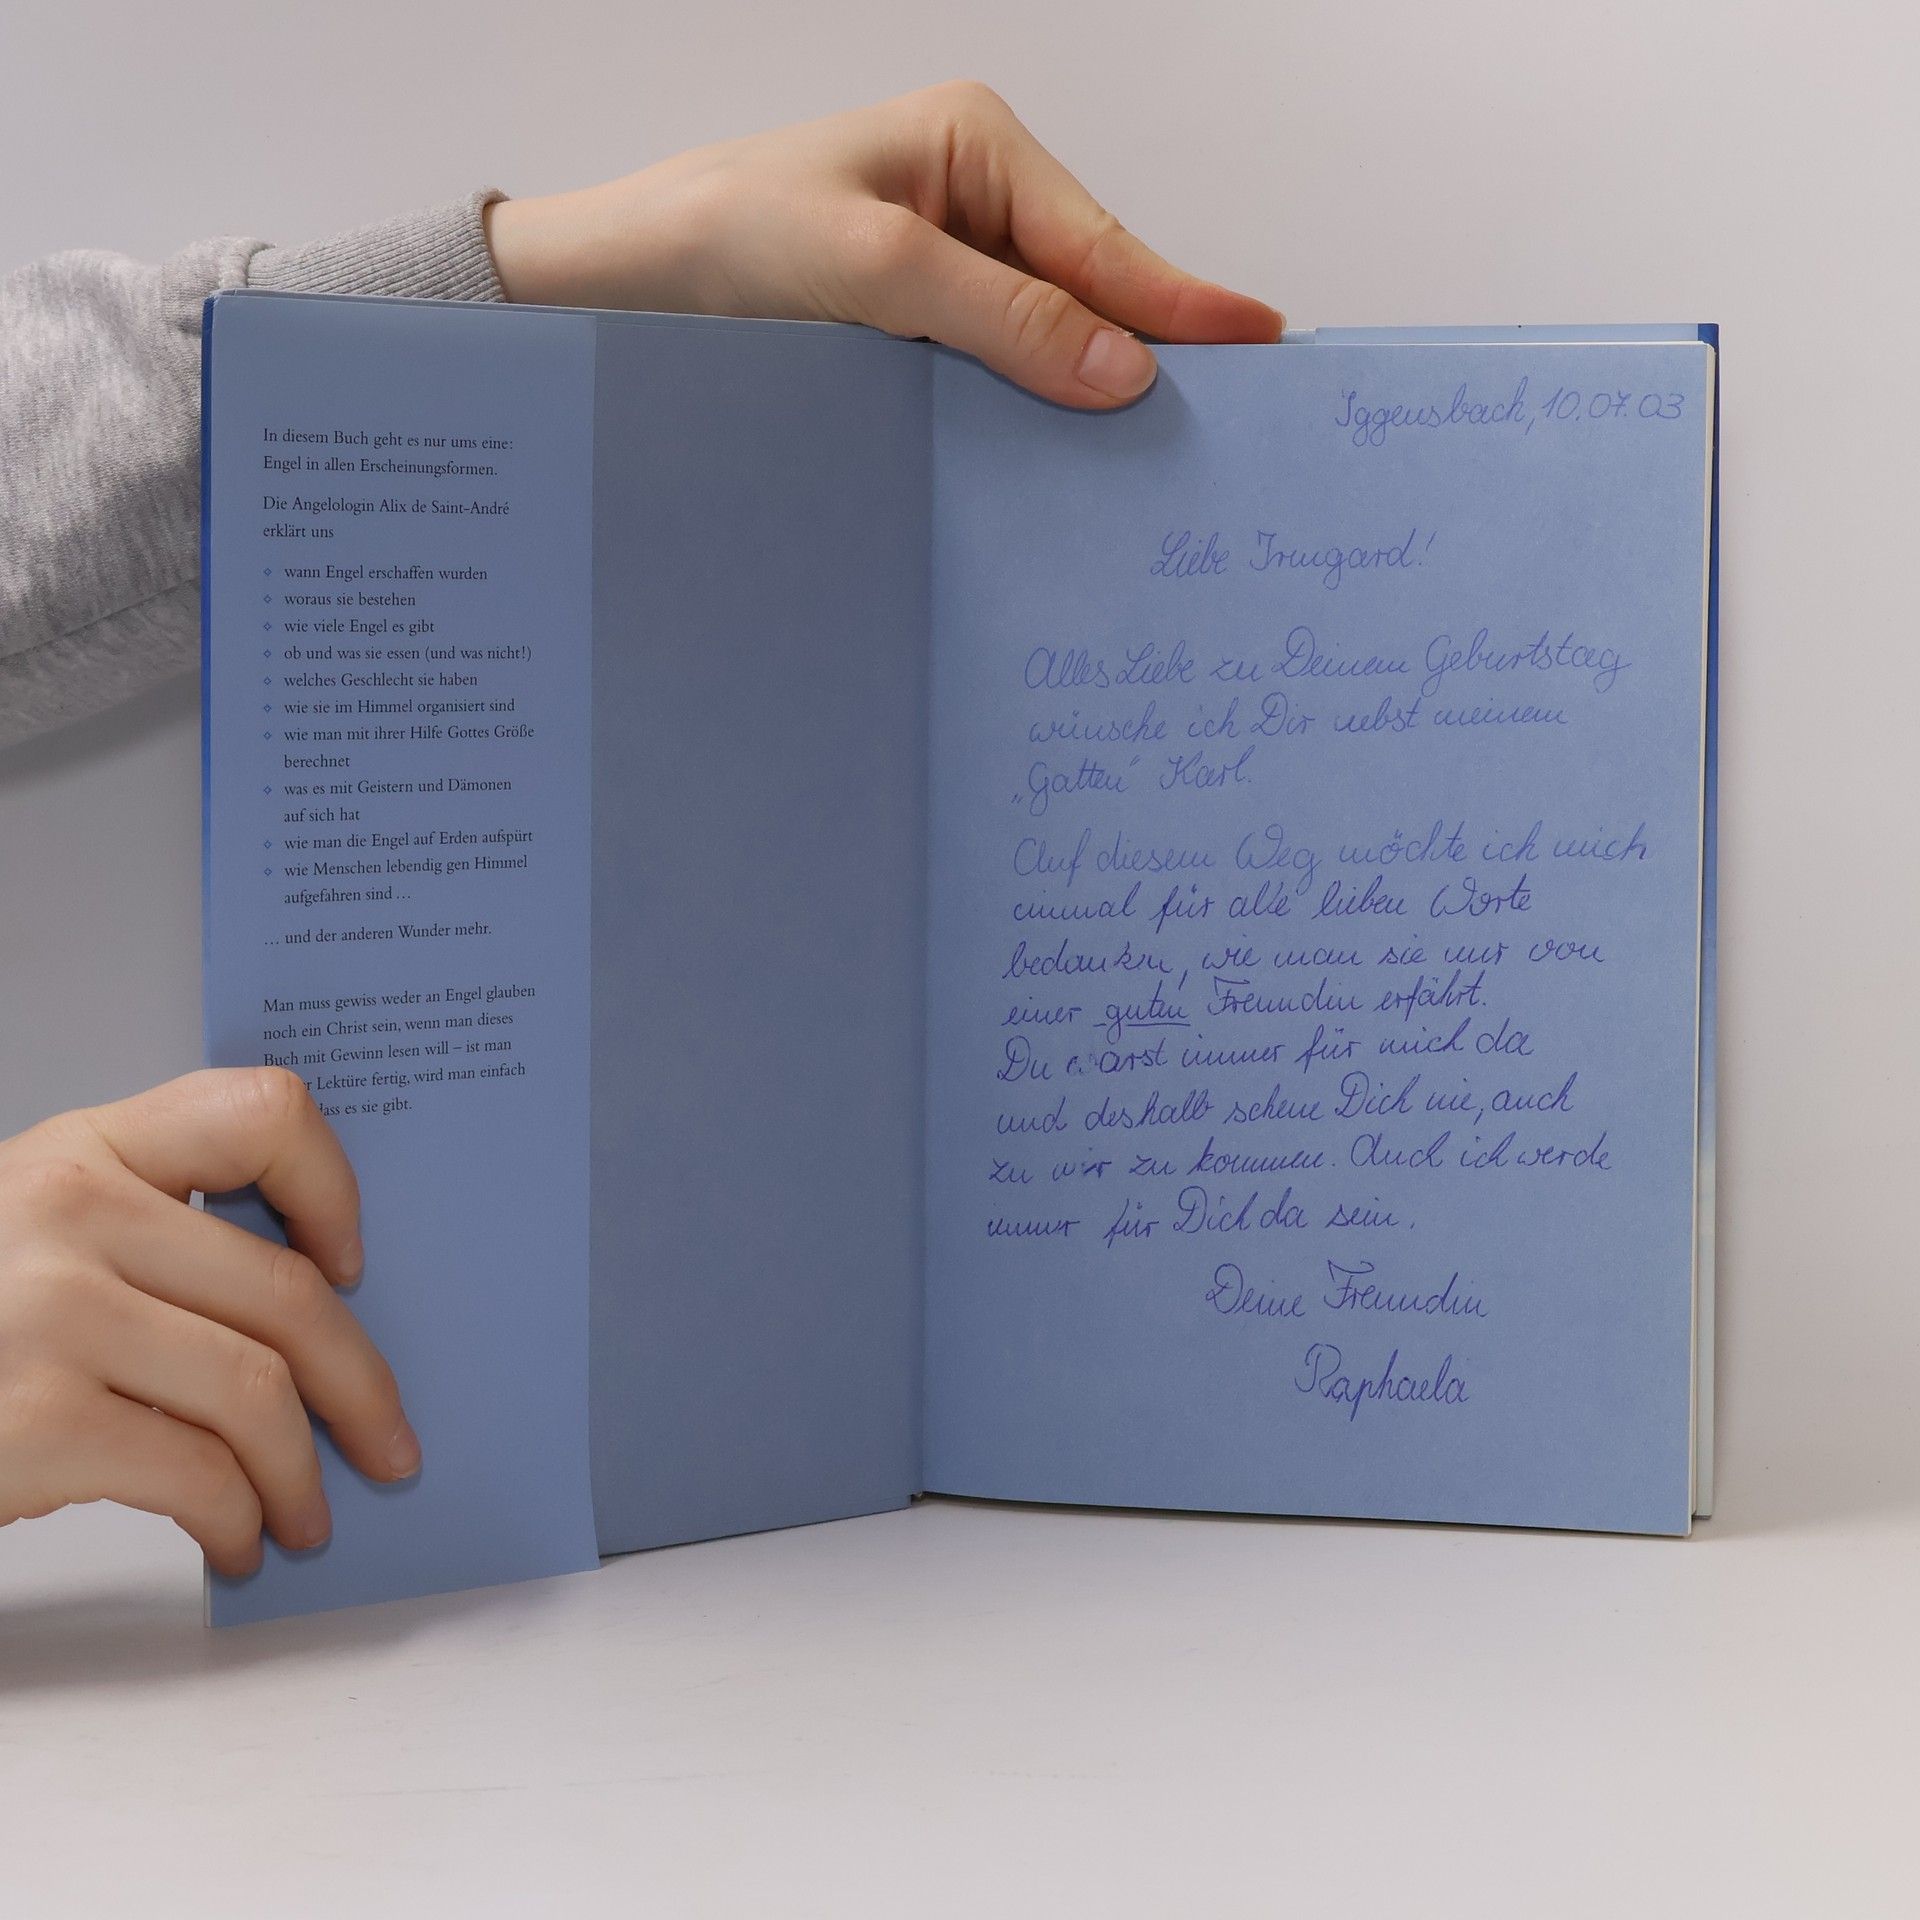 In diesem Buch geht es nur ums eine:
Engel in allen Erscheinungsformen.
Die Angelologin Alix de Saint-André
erklärt uns
⋄ wann Engel erschaffen wurden
⋄ woraus sie bestehen
⋄ wie viele Engel es gibt
⋄ ob und was sie essen (und was nicht!)
⋄ welches Geschlecht sie haben
⋄ wie sie im Himmel organisiert sind
⋄ wie man mit ihrer Hilfe Gottes Größe
berechnet
⋄ was es mit Geistern und Dämonen
auf sich hat
⋄ wie man die Engel auf Erden aufspürt
⋄ wie Menschen lebendig gen Himmel
aufgefahren sind …
… und der anderen Wunder mehr.
Man muss gewiss weder an Engel glauben
noch ein Christ sein, wenn man dieses
Buch mit Gewinn lesen will – ist man
Lektüre fertig, wird man einfach
es sie gibt.
Iggensbach, 10.07.03
Liebe Irmgard!
Alles Liebe zu Deinem Geburtstag
wünsche ich Dir nebst meinem
„Gatten" Karl.
Auf diesem Weg möchte ich mich
einmal für alle lieben Worte
bedanken, wie man sie nur von
einer guten Freundin erfährt.
Du warst immer für mich da
und deshalb scheue Dich nie, auch
zu mir zu kommen. Auch ich werde
immer für Dich da sein.
Deine Freundin
Raphaela